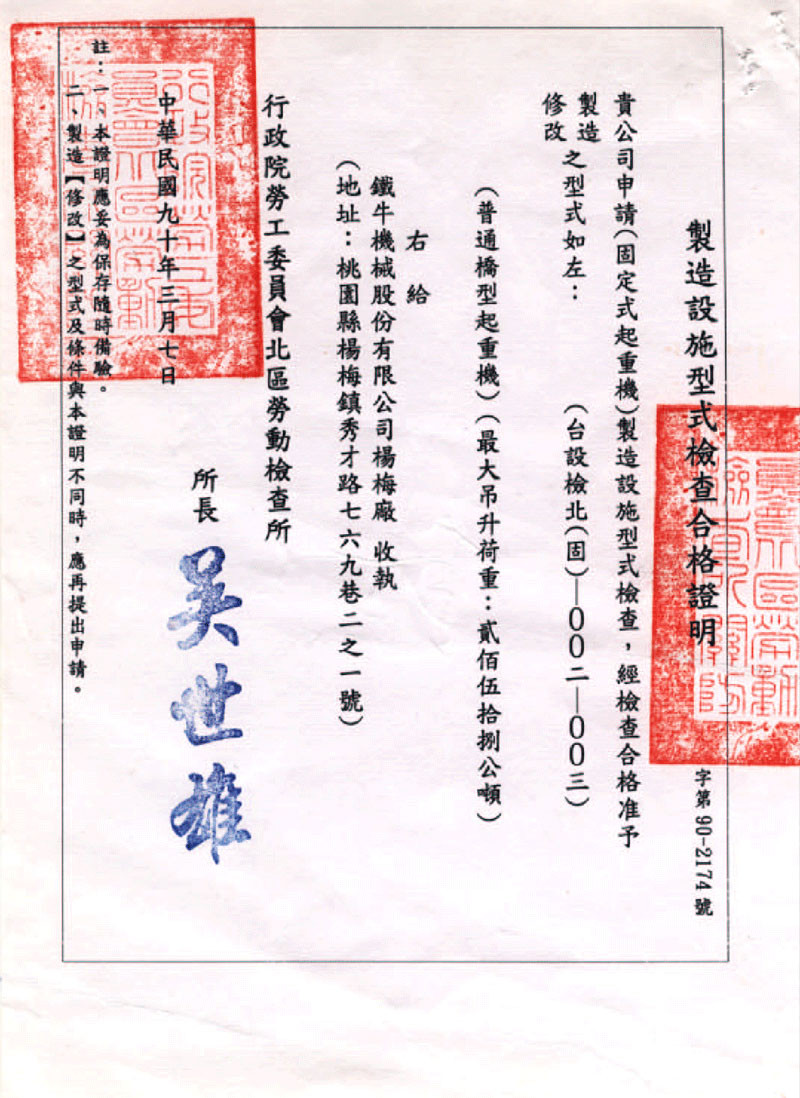 製造設施型式檢查合格證明
字第90-2174號
貴公司申請(固定式起重機)製造設施型式檢查，經檢查合格准予
製造
修改
之型式如左：
(台設檢北(固)—00二—00三)
(普通橋型起重機)(最大吊升荷重：貳佰伍拾捌公噸)
右給
鐵牛機械股份有限公司楊梅廠 收執
(地址：桃園縣楊梅鎮秀才路七六九巷二之一號)
行政院勞工委員會北區勞動檢查所
所長 吳世雄
中華民國九十年三月七日
註：一、本證明應妥為保存隨時備驗。
二、製造【修改】之型式及條件與本證明不同時，應再提出申請。